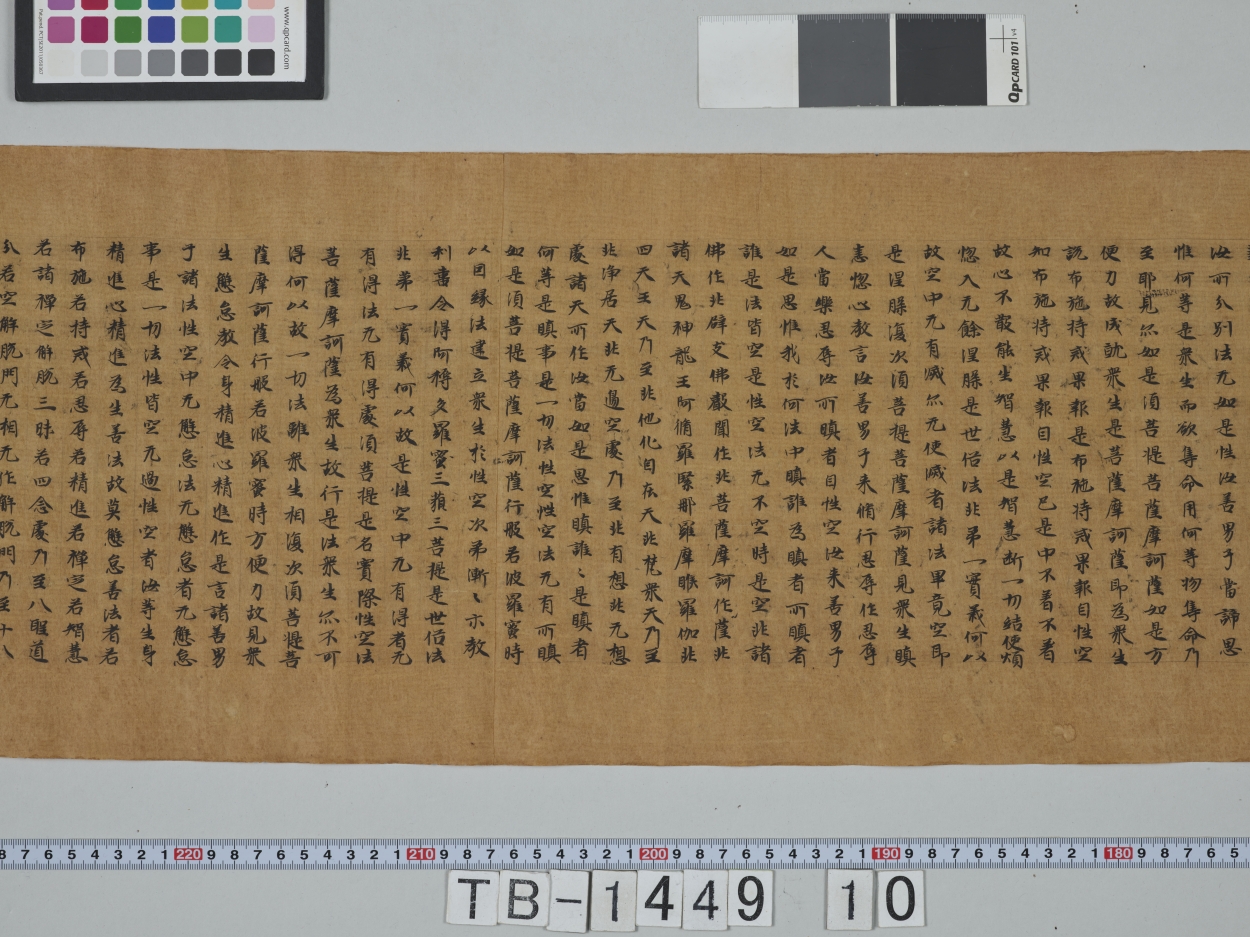 汝所分別法无如是性汝善男子當諦思
惟何等是衆生而欲集命用何等物集命乃
至耶見尒如是湏菩提菩薩摩訶薩如是方
便力故成就衆生是菩薩摩訶薩即為衆生
說布施持戒果報是布施持戒果報自性空
知布施持戒果報自性空已是中不着不着
故心不散能生智慧以是智慧断一切結使煩
惱入无餘涅槃是世俗法非弟一實義何以
故空中无有滅尒无使滅者諸法畢竟空即
是涅槃復次湏菩提菩薩摩訶薩見衆生瞋
恚惱心教言汝善男子来脩行忍辱作忍辱
人當樂忍辱汝所瞋者自性空汝来善男子
如是思惟我於何法中瞋誰為瞋者所瞋者
誰是法皆空是性空法无不空時是空非諸
佛作非辟支佛聲聞作非菩薩摩訶作薩非
諸天鬼神龍王阿脩羅緊那羅摩睺羅伽非
四天王天乃至非他化自在天非梵衆天乃至
非浄居天非无邊空處乃至非有想非无想
處諸天所作汝當如是思惟瞋誰〻是瞋者
何等是瞋事是一切法性空性空法无有所瞋
如是湏菩提菩薩摩訶薩行般若波羅蜜時
以因縁法建立衆生於性空次弟漸〻示教
利喜令得阿耨多羅蜜三藐三菩提是世俗法
非弟一實義何以故是性空中无有得者无
有得法无有得處湏菩提是名實際性空法
菩薩摩訶薩為衆生故行是法衆生尒不可
得何以故一切法離衆生相復次湏菩提菩
薩摩訶薩行般若波羅蜜時方便力故見衆
生懈怠教令身精進心精進作是言諸善男
子諸法性空中无懈怠法无懈怠者无懈怠
事是一切法性皆空无過性空者汝等生身
精進心精進為生善法故莫懈怠善法者若
布施若持戒若忍辱若精進若禪定若智慧
若諸禪定解脫三昧若四念處乃至八聖道
分若空解脫門无相无作解脫門乃至十八
www.qpcard.com
QPCARD 101 v4
TB-1449 10
8 7 6 5 4 3 2 1 220 9 8 7 6 5 4 3 2 1 210 9 8 7 6 5 4 3 2 1 200 9 8 7 6 5 4 3 2 1 190 9 8 7 6 5 4 3 2 1 180 9 8 7 6 5